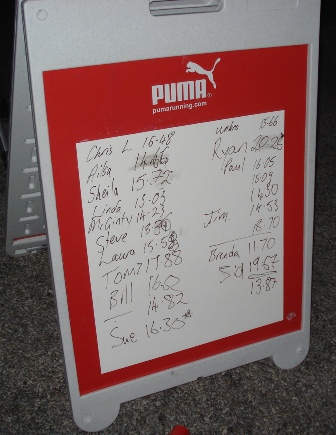 PUMA
pumarunning.com
Chris L 16-48
Ailsa
Sheila 15.72
Linda 15.03
McGinty 14.23
Steve
Laura
Tom 17.88
Bill 16.62
14.82
Sue 16.30
umbro 15.66
Ryan 20.26
Paul 16.05
15.09
14.30
14.53
Jim 15.70
Brenda 11.70
Sid 19.57
13.87